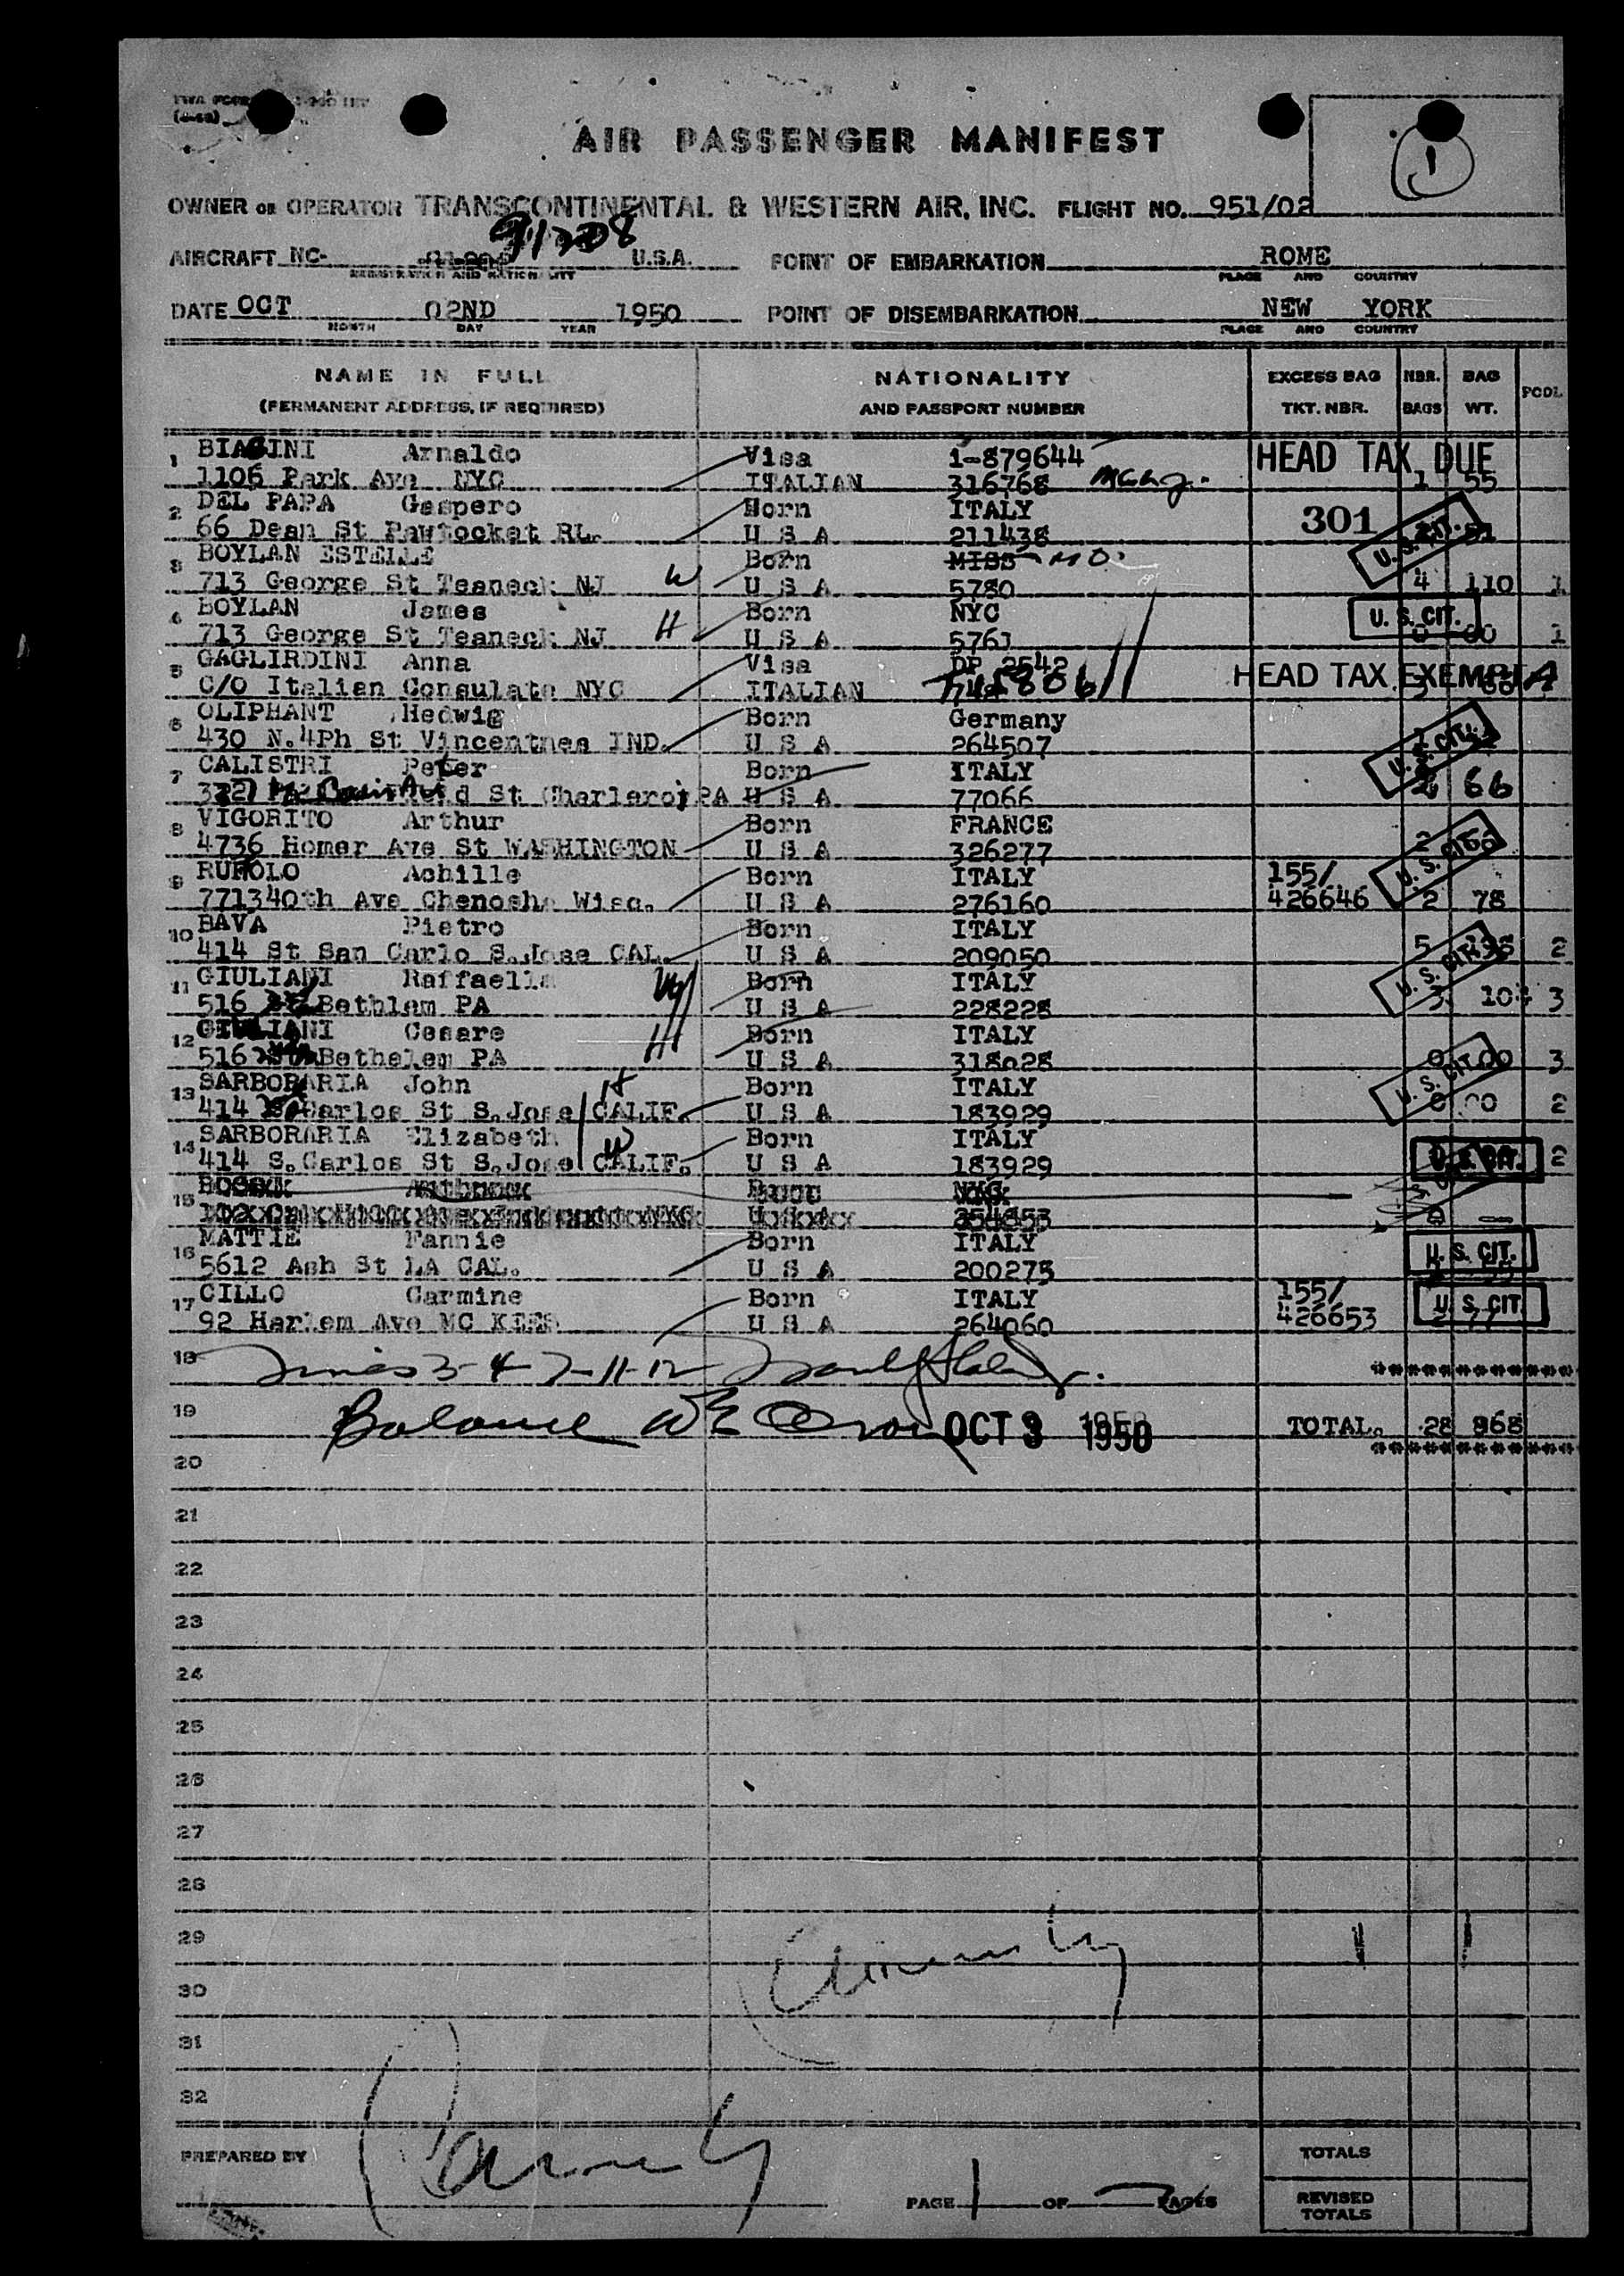 (4-48)
1
AIR PASSENGER MANIFEST
OWNER OR OPERATOR TRANSCONTINENTAL & WESTERN AIR, INC. FLIGHT NO. 951/02
AIRCRAFT NC- U.S.A. POINT OF EMBARKATION ROME
REGISTRATION AND NATIONALITY PLACE AND COUNTRY
DATE OCT 02ND 1950 POINT OF DISEMBARKATION NEW YORK
MONTH DAY YEAR PLACE AND COUNTRY
NAME IN FULL NATIONALITY EXCESS BAG NBR. BAG
(PERMANENT ADDRESS, IF REQUIRED) AND PASSPORT NUMBER TKT. NBR. BAGS WT. POOL
1 BIAGINI Arnaldo Visa 1-879644 HEAD TAX DUE
1106 Park Ave NYC ITALIAN 316768 1 55
2 DEL PAPA Gaspero Born ITALY 301 U.S. CIT.
66 Dean St Pawtocket RL. U S A 211438
3 BOYLAN ESTELLE Born MISS MO.
713 George St Teaneck NJ W U S A 5780 4 110 1
4 BOYLAN James Born NYC U. S. CIT.
713 George St Teaneck NJ H U S A 5761 0 00 1
5 GAGLIRDINI Anna Visa DP 2542 HEAD TAX EXEMPT
C/O Italian Consulate NYC ITALIAN
6 OLIPHANT Hedwig Born Germany U. S. CIT.
430 N.4Ph St Vincentnes IND. U S A 264507
7 CALISTRI Peter Born ITALY
St Charleroi PA U S A 77066 66
8 VIGORITO Arthur Born FRANCE
4736 Homer Ave St WASHINGTON U S A 326277 U. S. CIT.
9 RUFFOLO Achille Born ITALY 155/
771340th Ave Chenosha Wisc. U S A 276160 426646 2 78
10 BAVA Pietro Born ITALY
414 St San Carlo S.Jose CAL. U S A 209050 5 2
11 GIULIANI Raffaella W Born ITALY U. S. CIT.
516 Bethlem PA U S A 228228 3 3
12 GIULIANI Cesare H Born ITALY
516 Bethelem PA U S A 318028 0 00 3
13 SARBORARIA John H Born ITALY U. S. CIT.
414 S. Carlos St S.Jose CALIF. U S A 183929 0 00 2
14 SARBORARIA Elizabeth W Born ITALY
414 S.Carlos St S.Jose CALIF. U S A 183929 U. S. CIT. 2
15 NYC
254853
16 MATTIE Fannie Born ITALY
5612 Ash St LA CAL. U S A 200275 U. S. CIT.
17 CILLO Carmine Born ITALY 155/
92 Harlem Ave MC KEES U S A 264060 426653 U. S. CIT.
18 Lines 3-4-7-11-12
19 Balance OCT 3 1950 TOTAL. 28 968
20
21
22
23
24
25
26
27
28
29
30
31
32
PREPARED BY TOTALS
PAGE 1 OF PAGES REVISED
TOTALS